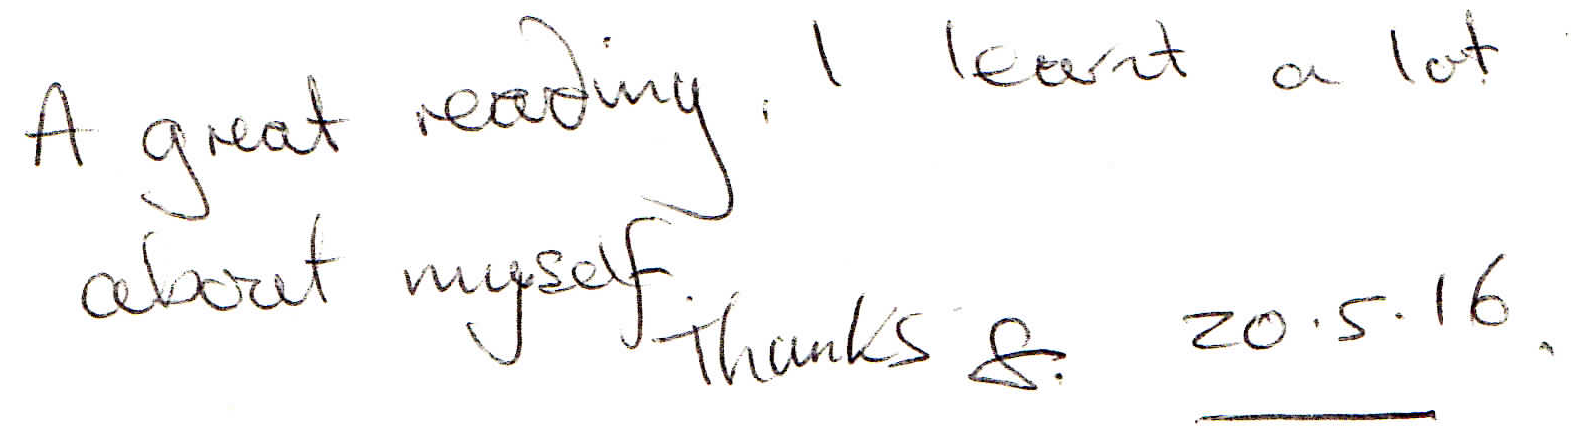 A great reading, I learnt a lot
about myself.
Thanks 20.5.16.